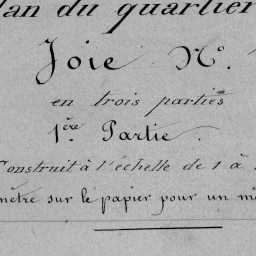 lan du quartier
Joie N°.
en trois parties
1ère Partie.
Construit à l'échelle de 1 à
mètre sur le papier pour un m